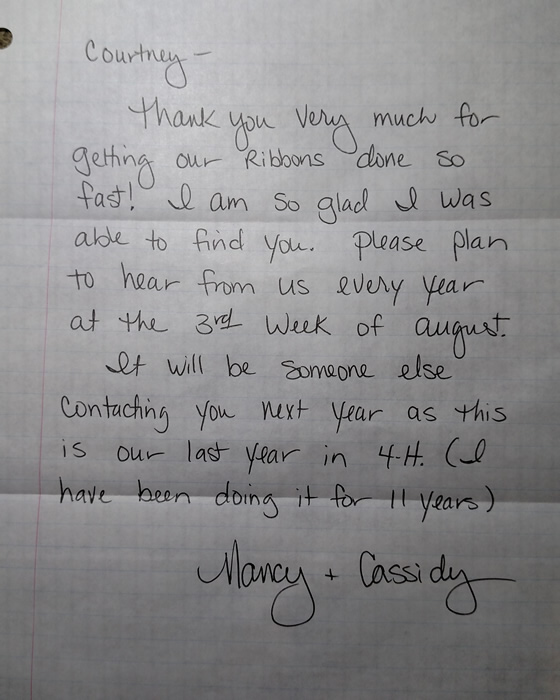 Courtney -
Thank you very much for
getting our Ribbons done so
fast! I am so glad I was
able to find you. Please plan
to hear from us every year
at the 3rd week of august.
It will be someone else
contacting you next year as this
is our last year in 4-H. (I
have been doing it for 11 years)
Nancy + Cassidy